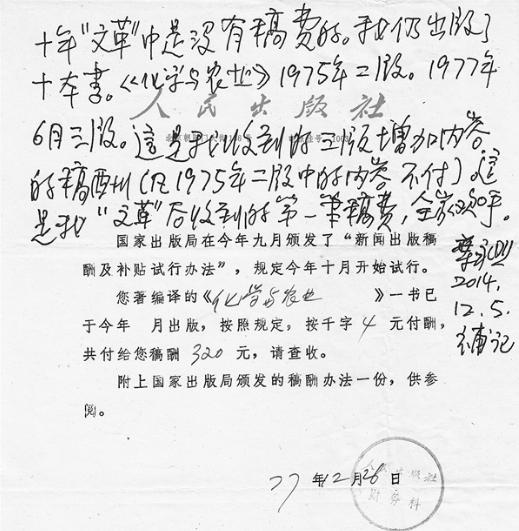 十年"文革"中是没有稿费的。我仍出版了
十本书。《化学与农业》1975年二版。1977年
人民出版社
6月三版。这是我收到的三版增加内容
的稿酬(凡1975年二版中的内容不付)。这
是我"文革"后收到的第一笔稿费,全家欢乎。
国家出版局在今年九月颁发了"新闻出版稿
酬及补贴试行办法",规定今年十月开始试行。
您著编译的《化学与农业》一书已
于今年 月出版,按照规定,按千字4元付酬,
共付给您稿酬320元,请查收。
附上国家出版局颁发的稿酬办法一份,供参
阅。
2014.
12.5.
补记
77年12月26日
人民出版社
财务科